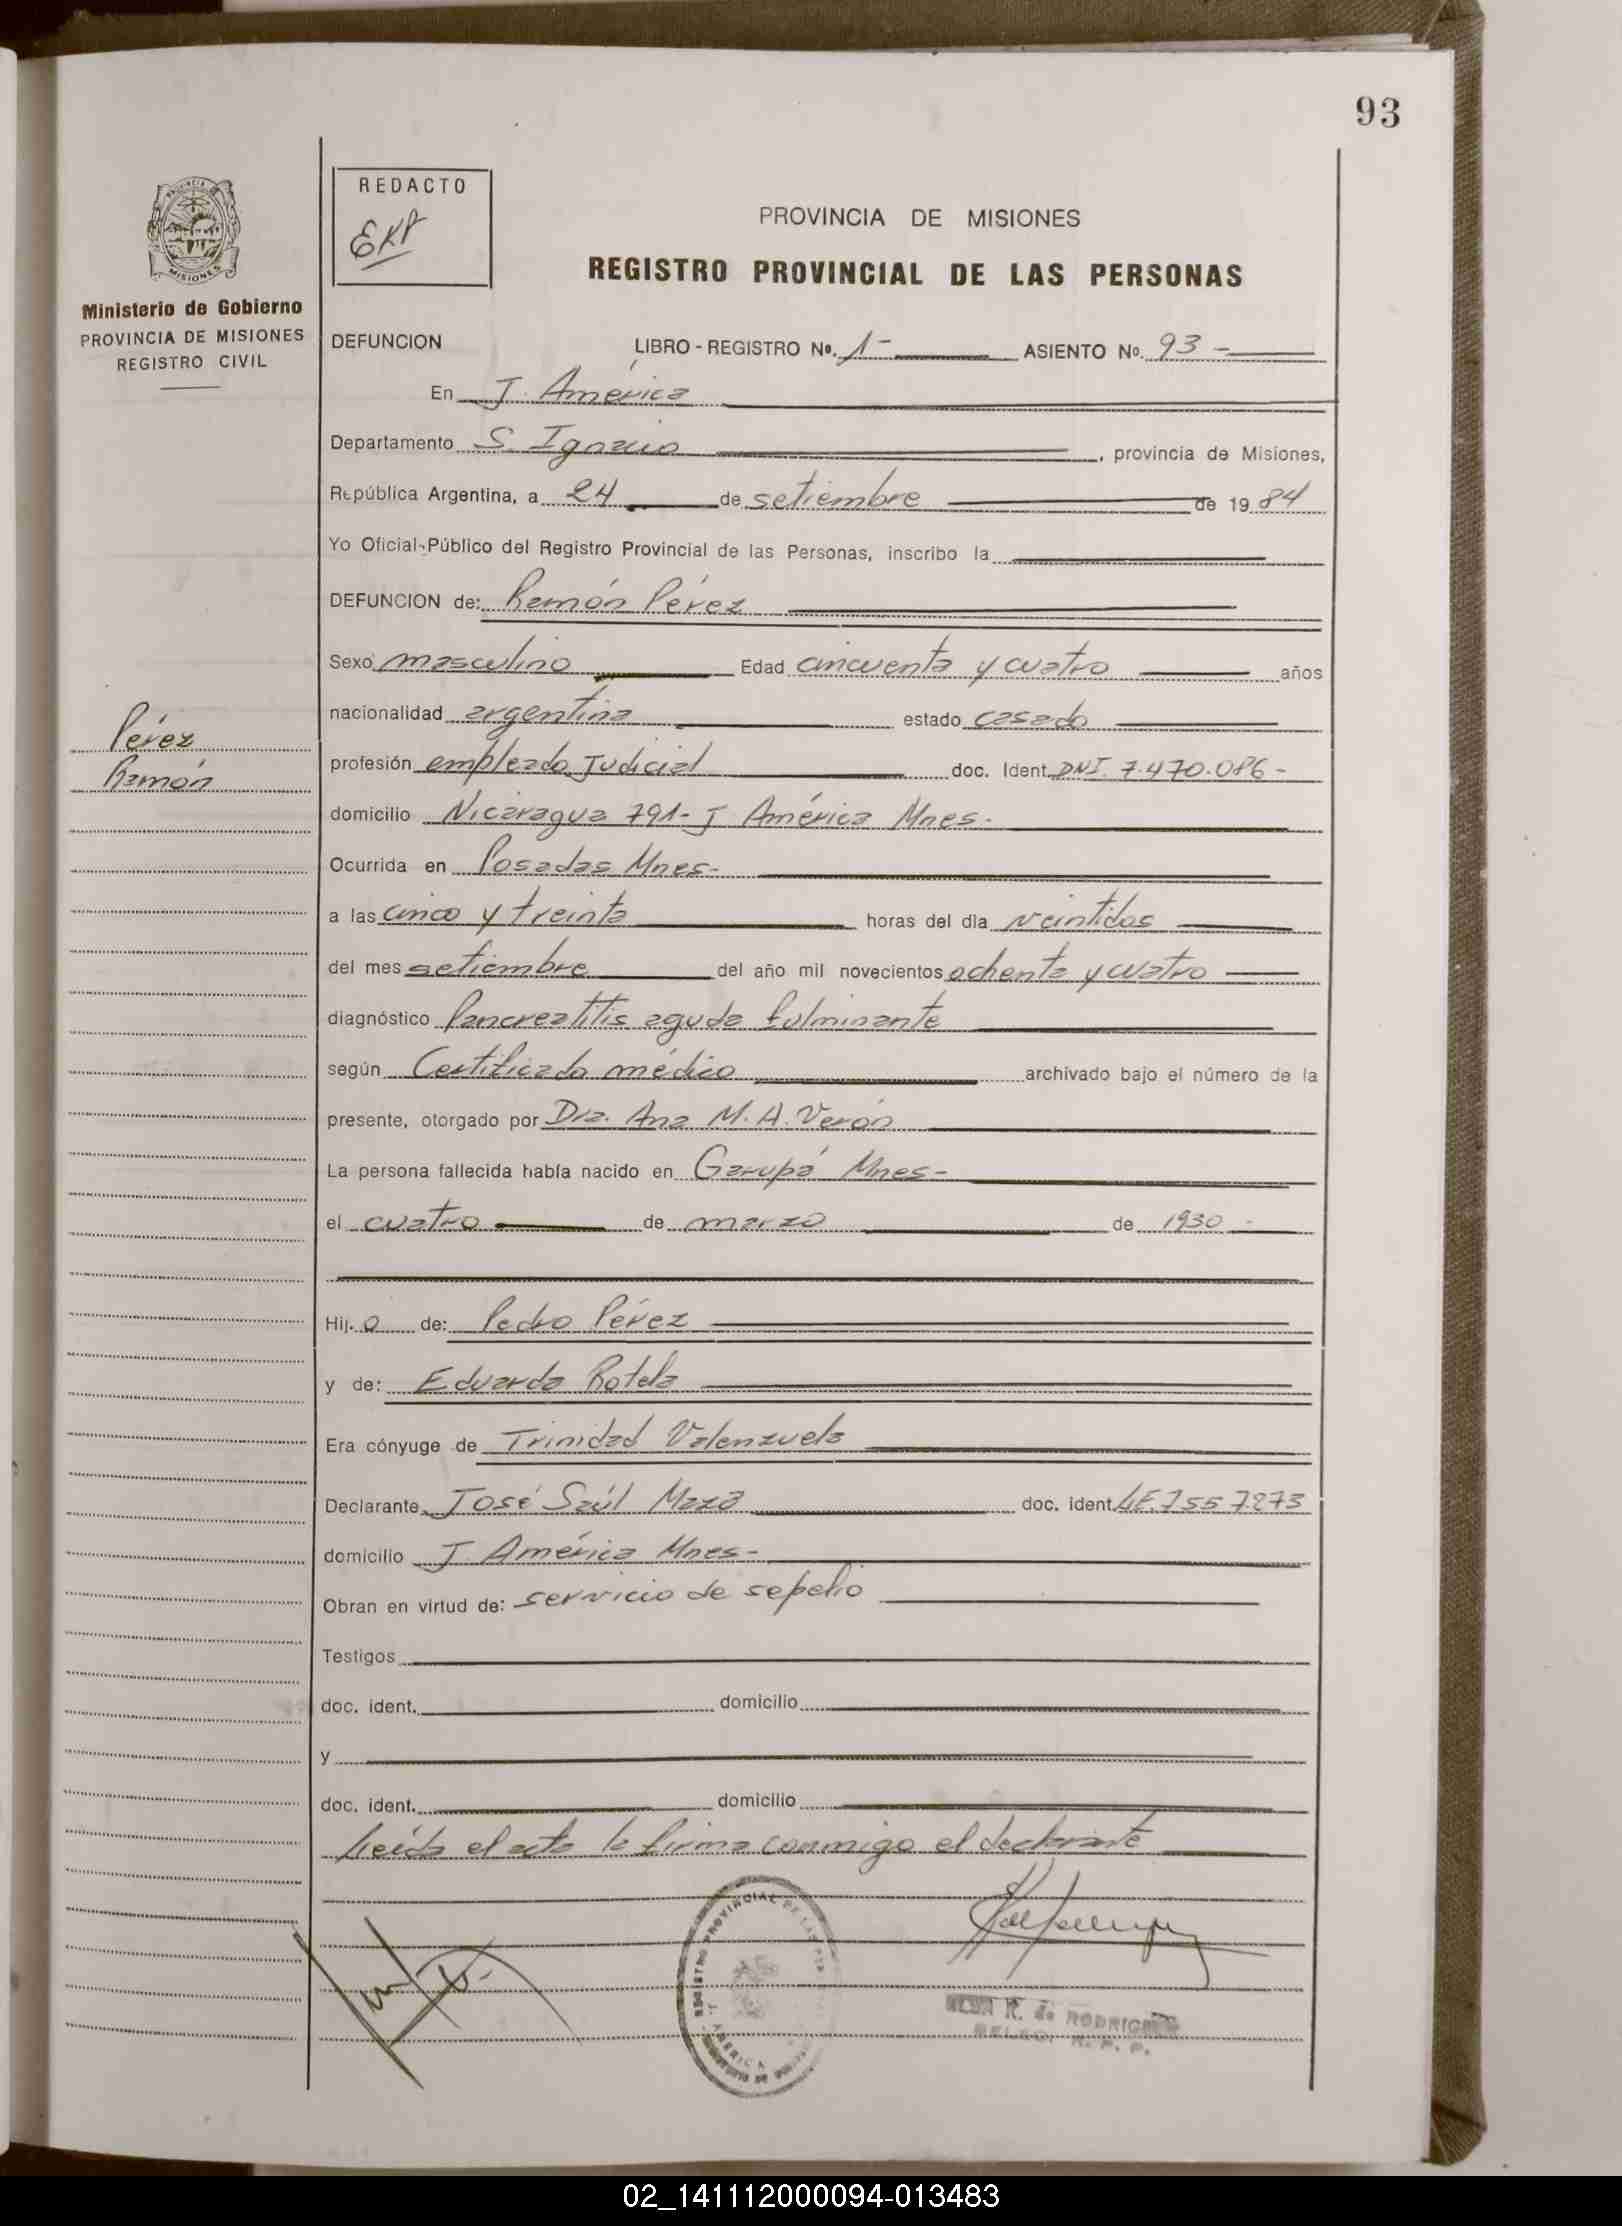 93
PROVINCIA DE MISIONES
Ministerio de Gobierno
PROVINCIA DE MISIONES
REGISTRO CIVIL
Pérez
Ramón
REDACTO
PROVINCIA DE MISIONES
REGISTRO PROVINCIAL DE LAS PERSONAS
DEFUNCION LIBRO - REGISTRO Nº. 1- ASIENTO Nº. 93 -
En J. América
Departamento S. Ignacio , provincia de Misiones,
República Argentina, a 24 de setiembre de 1984
Yo Oficial Público del Registro Provincial de las Personas, inscribo la
DEFUNCION de: Ramón Pérez
Sexo masculino Edad cincuenta y cuatro años
nacionalidad argentina estado casado
profesión empleado Judicial doc. Ident. DNI. 7.470.086-
domicilio Nicaragua 791- J América Mnes.
Ocurrida en Posadas Mnes-
a las cinco y treinta horas del día veintidos
del mes setiembre del año mil novecientos ochenta y cuatro
diagnóstico Pancreatitis aguda fulminante
según Certificado médico archivado bajo el número de la
presente, otorgado por Dra. Ana M. A. Verón
La persona fallecida había nacido en Garupá Mnes-
el cuatro de marzo de 1930 -
Hij.o de: Pedro Pérez
y de: Eduarda Rotela
Era cónyuge de Trinidad Valenzuela
Declarante José Saúl Maza doc. ident. LE. 7557.273
domicilio J. América Mnes-
Obran en virtud de: servicio de sepelio
Testigos
doc. ident. domicilio
y
doc. ident. domicilio
Leída el acta la firma conmigo el declarante
R. de RODRIGUEZ
02_141112000094-013483